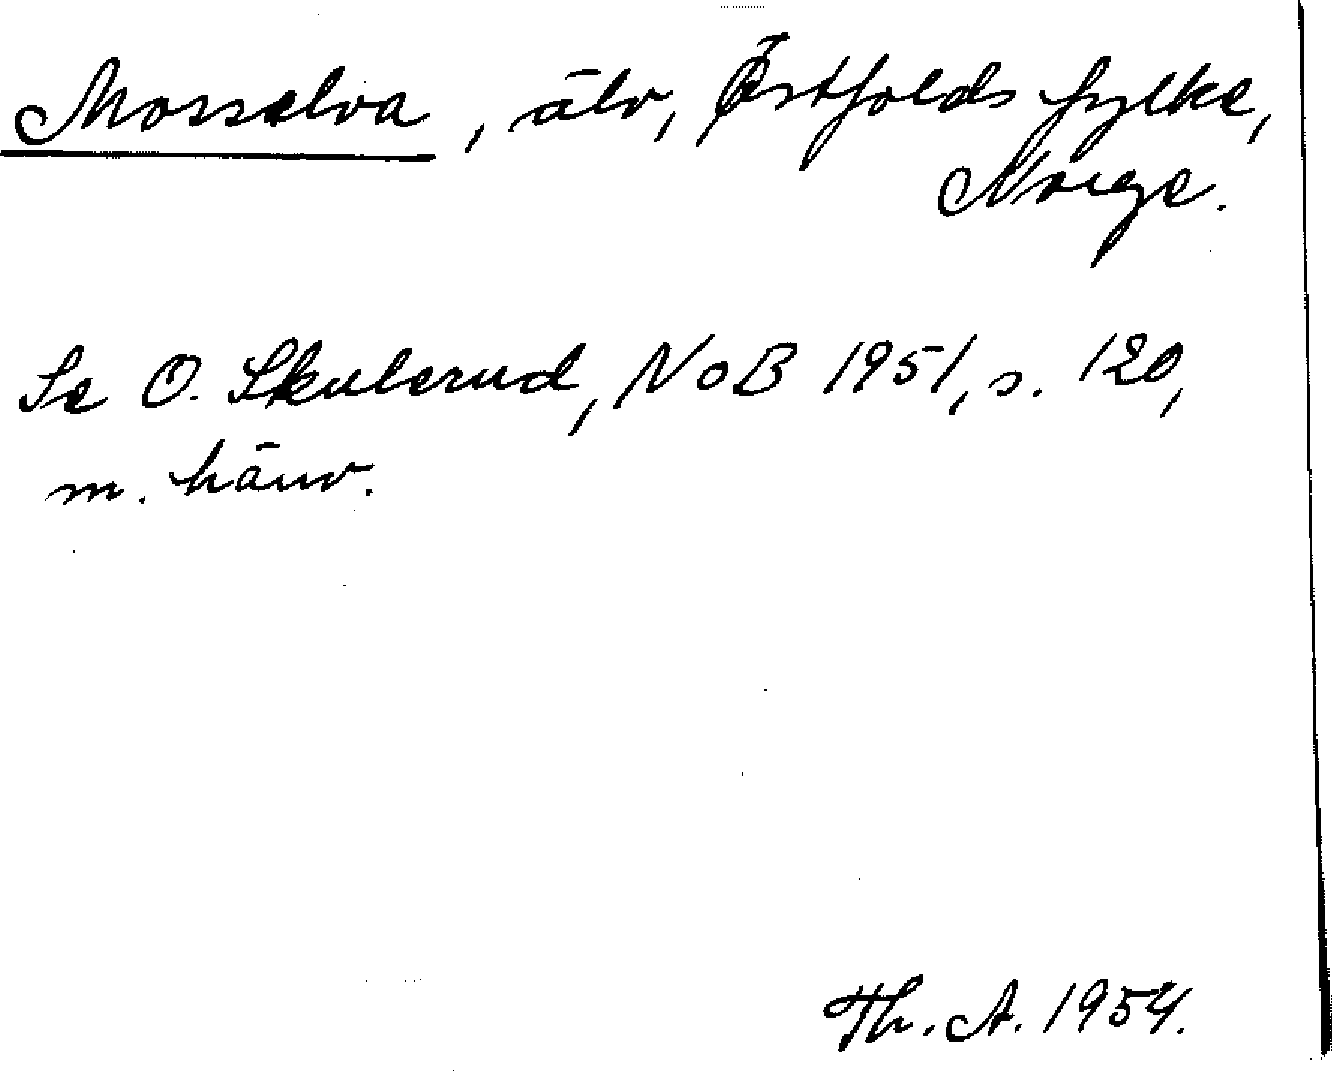 Mosselva, älv, Østfolds fylke,
Norge.
Se O. Skulerud, NoB 1951, s. 120,
m. hänv.
Th. A. 1954.